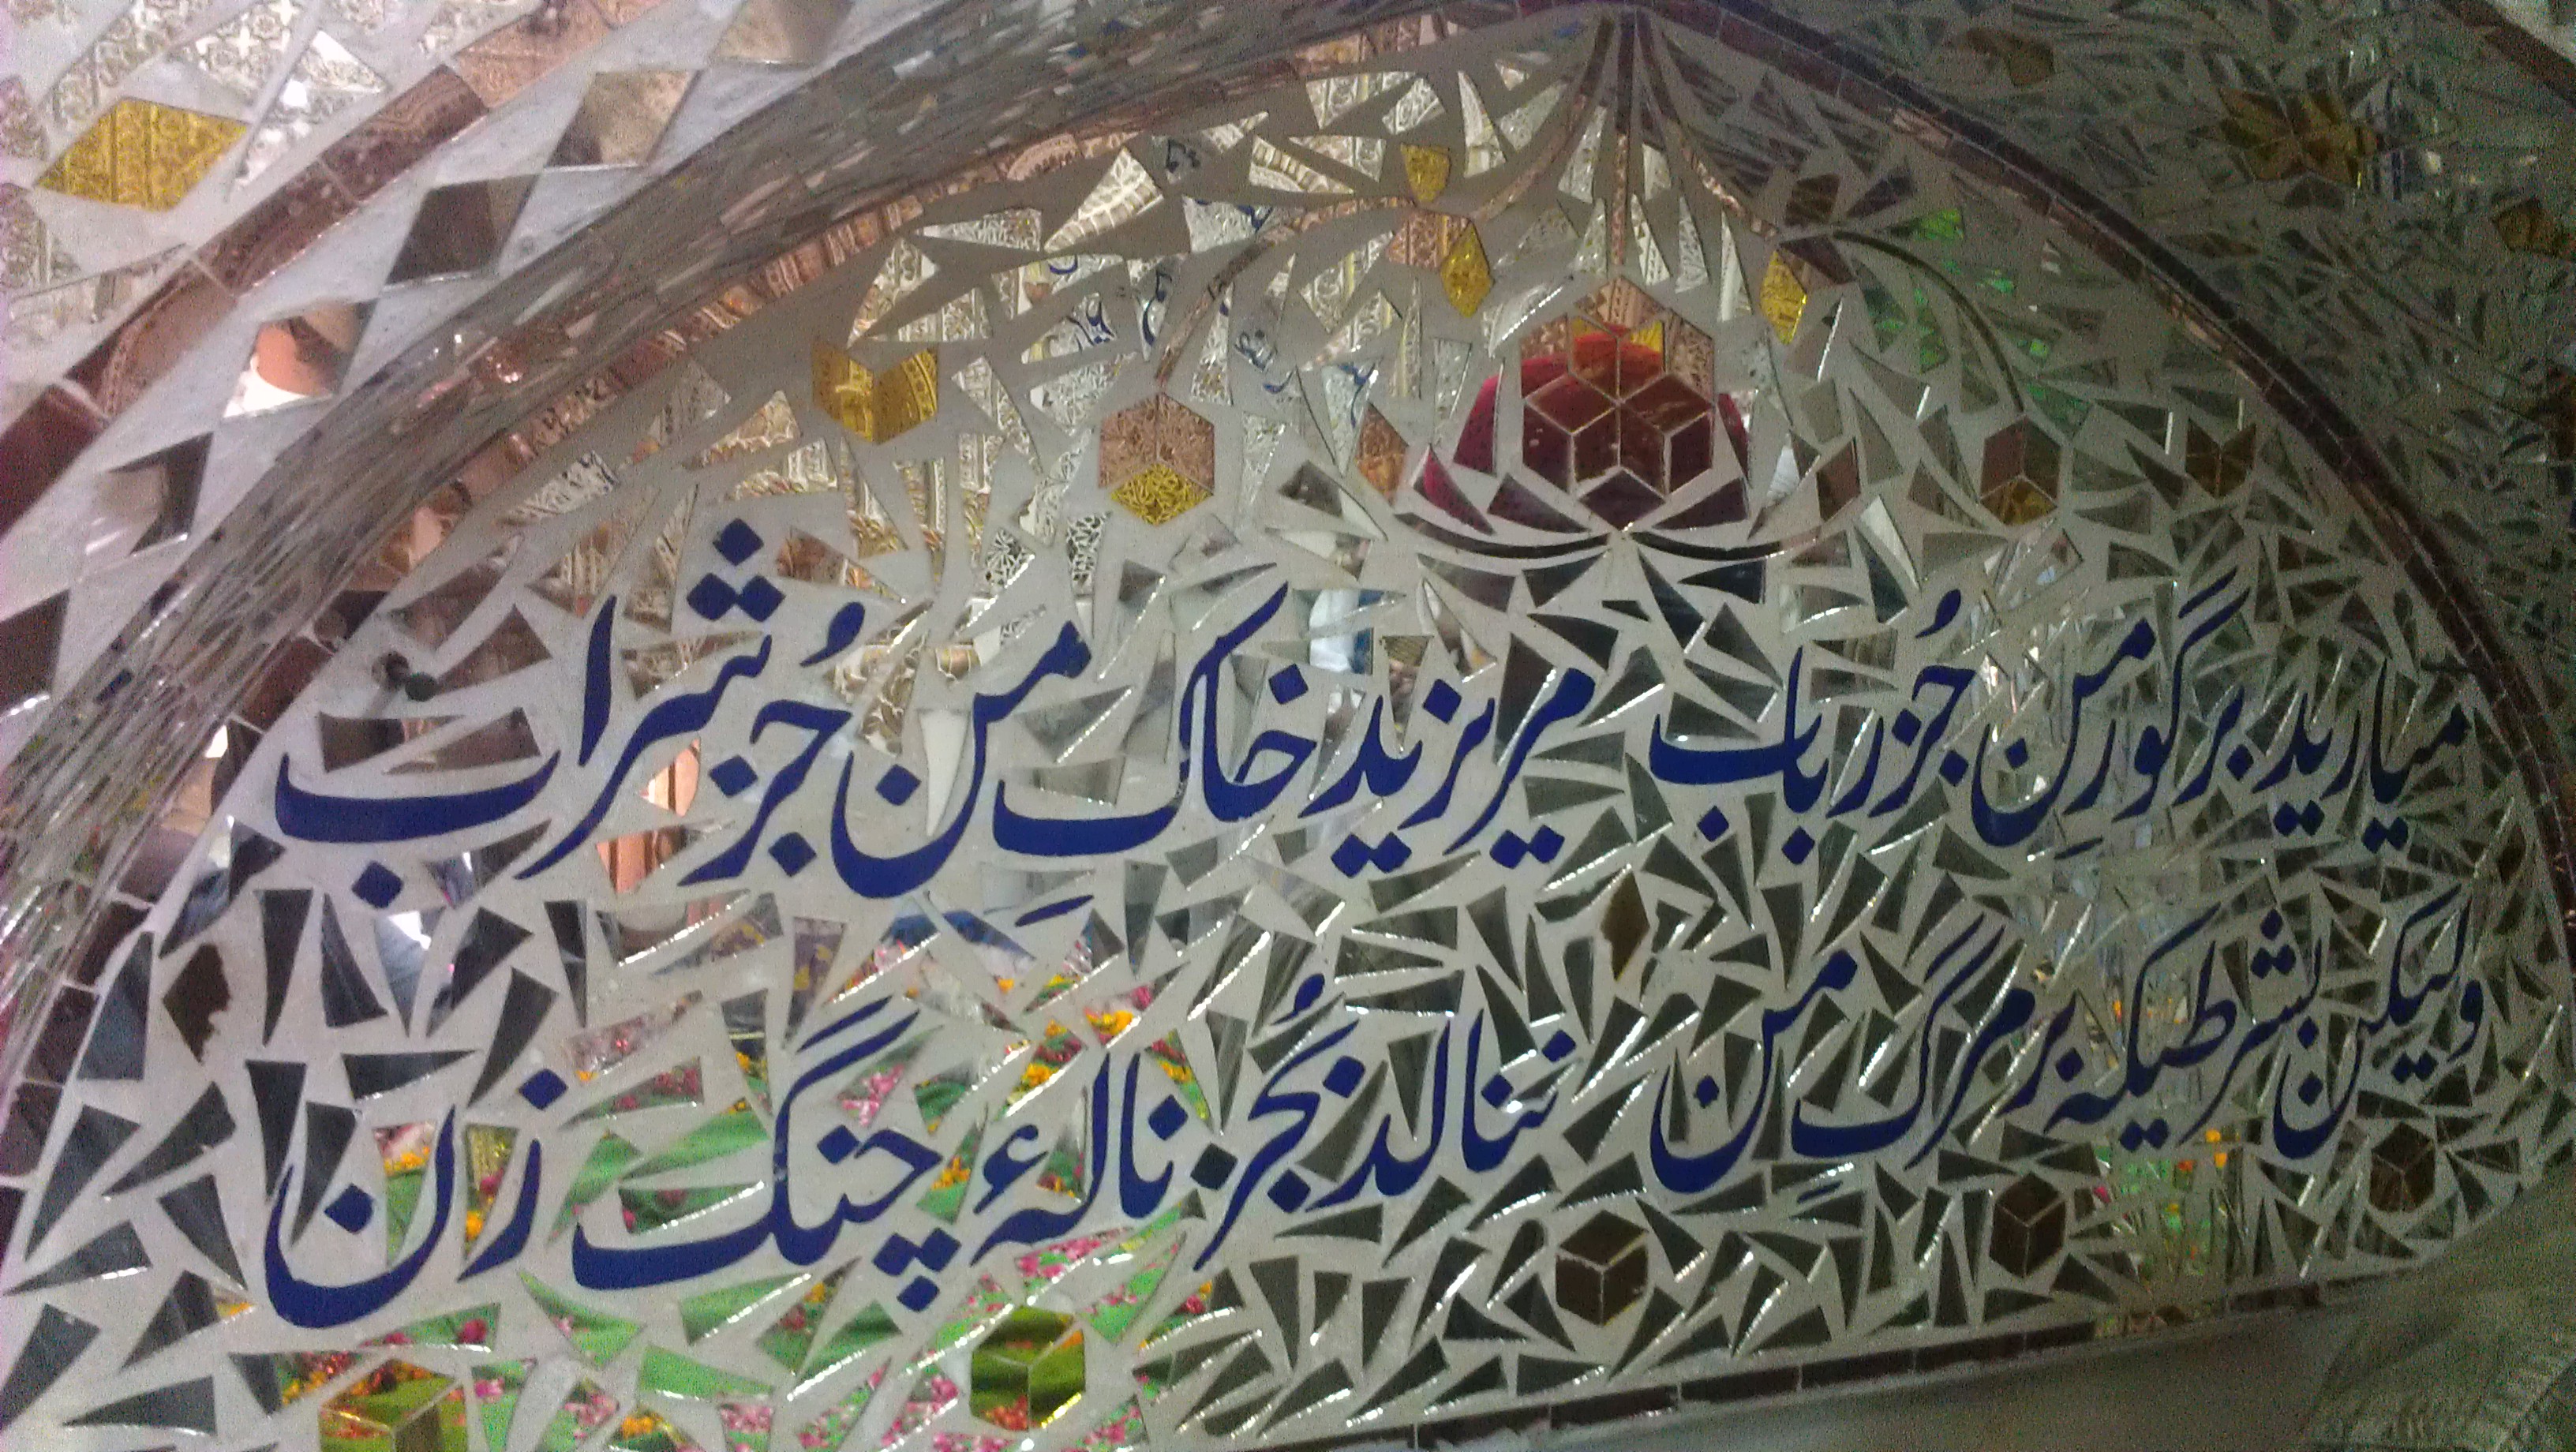 میارید بر گورِ من جُز رباب مریزید خاکِ من جُز شراب
ولیکن بشرطیکہ بر مرگِ من ننالد بجُز نالۂ چنگ زن